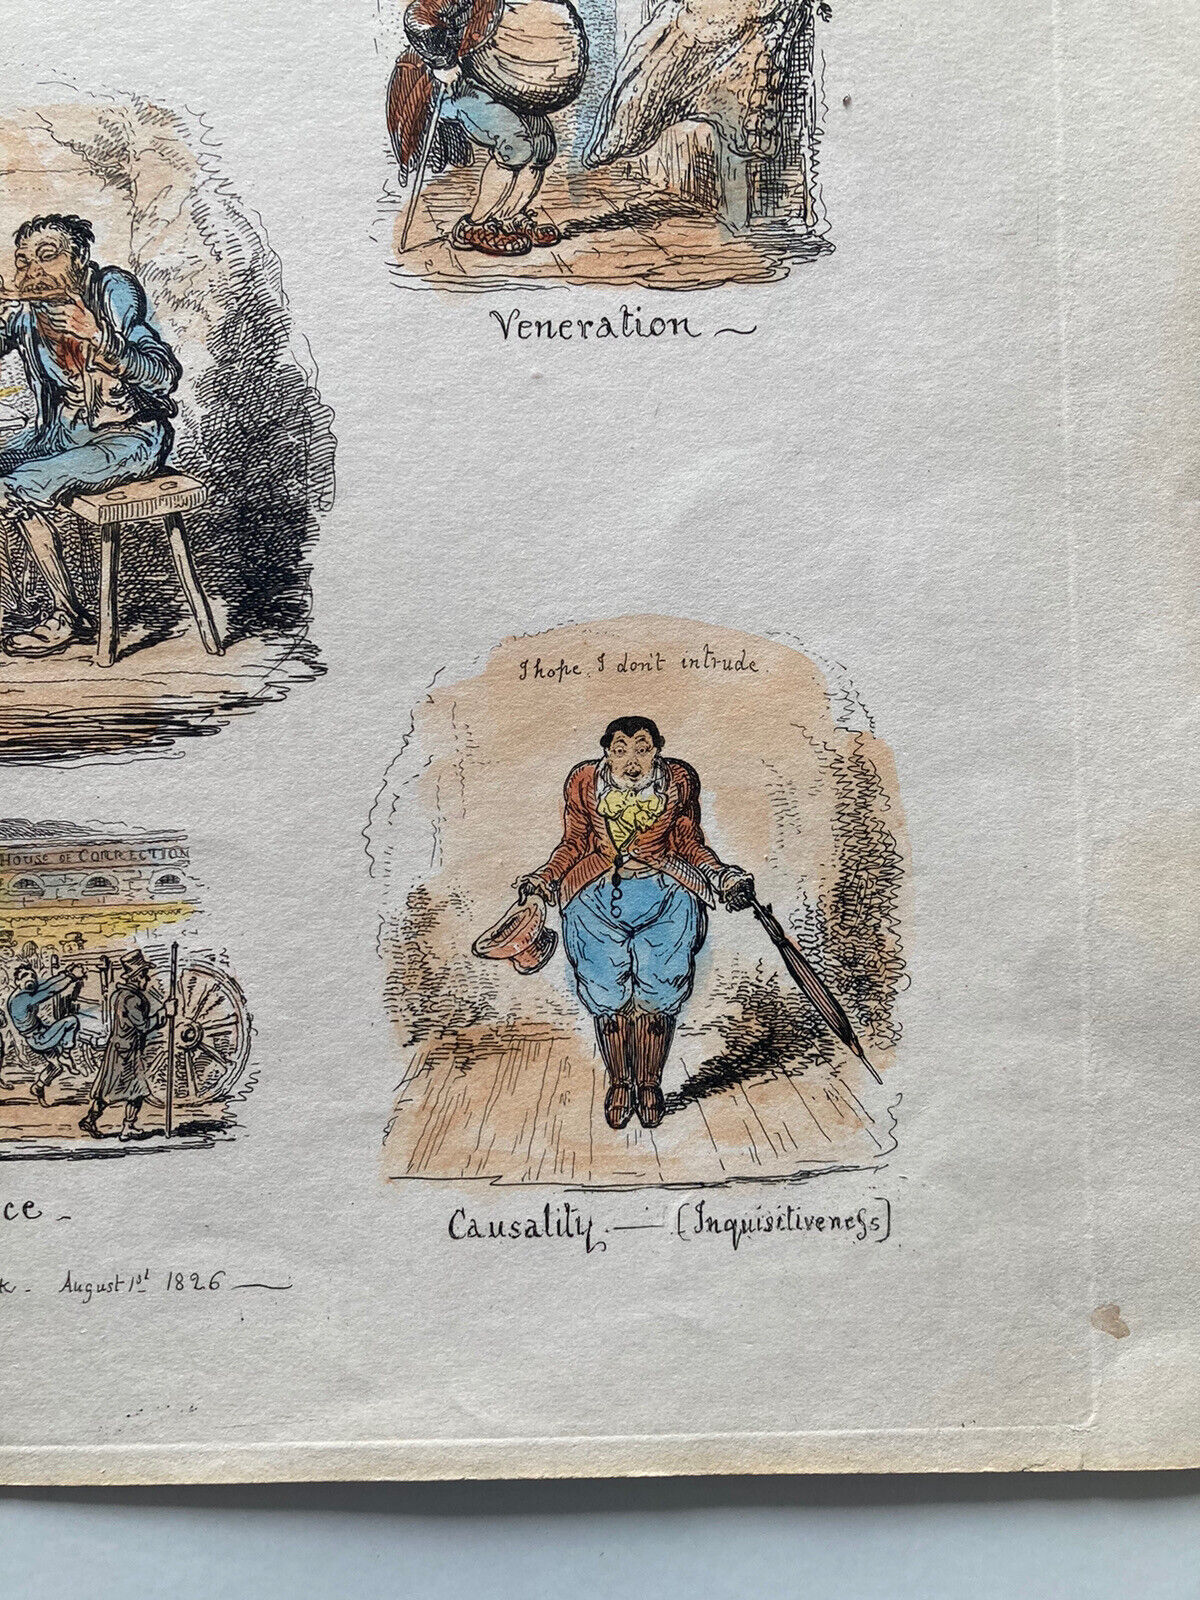 Veneration ~
I hope I don't intrude.
HOUSE OF CORRECTION
ce -
Causality. — [Inquisitiveneſs]
k - August 1st 1826 —